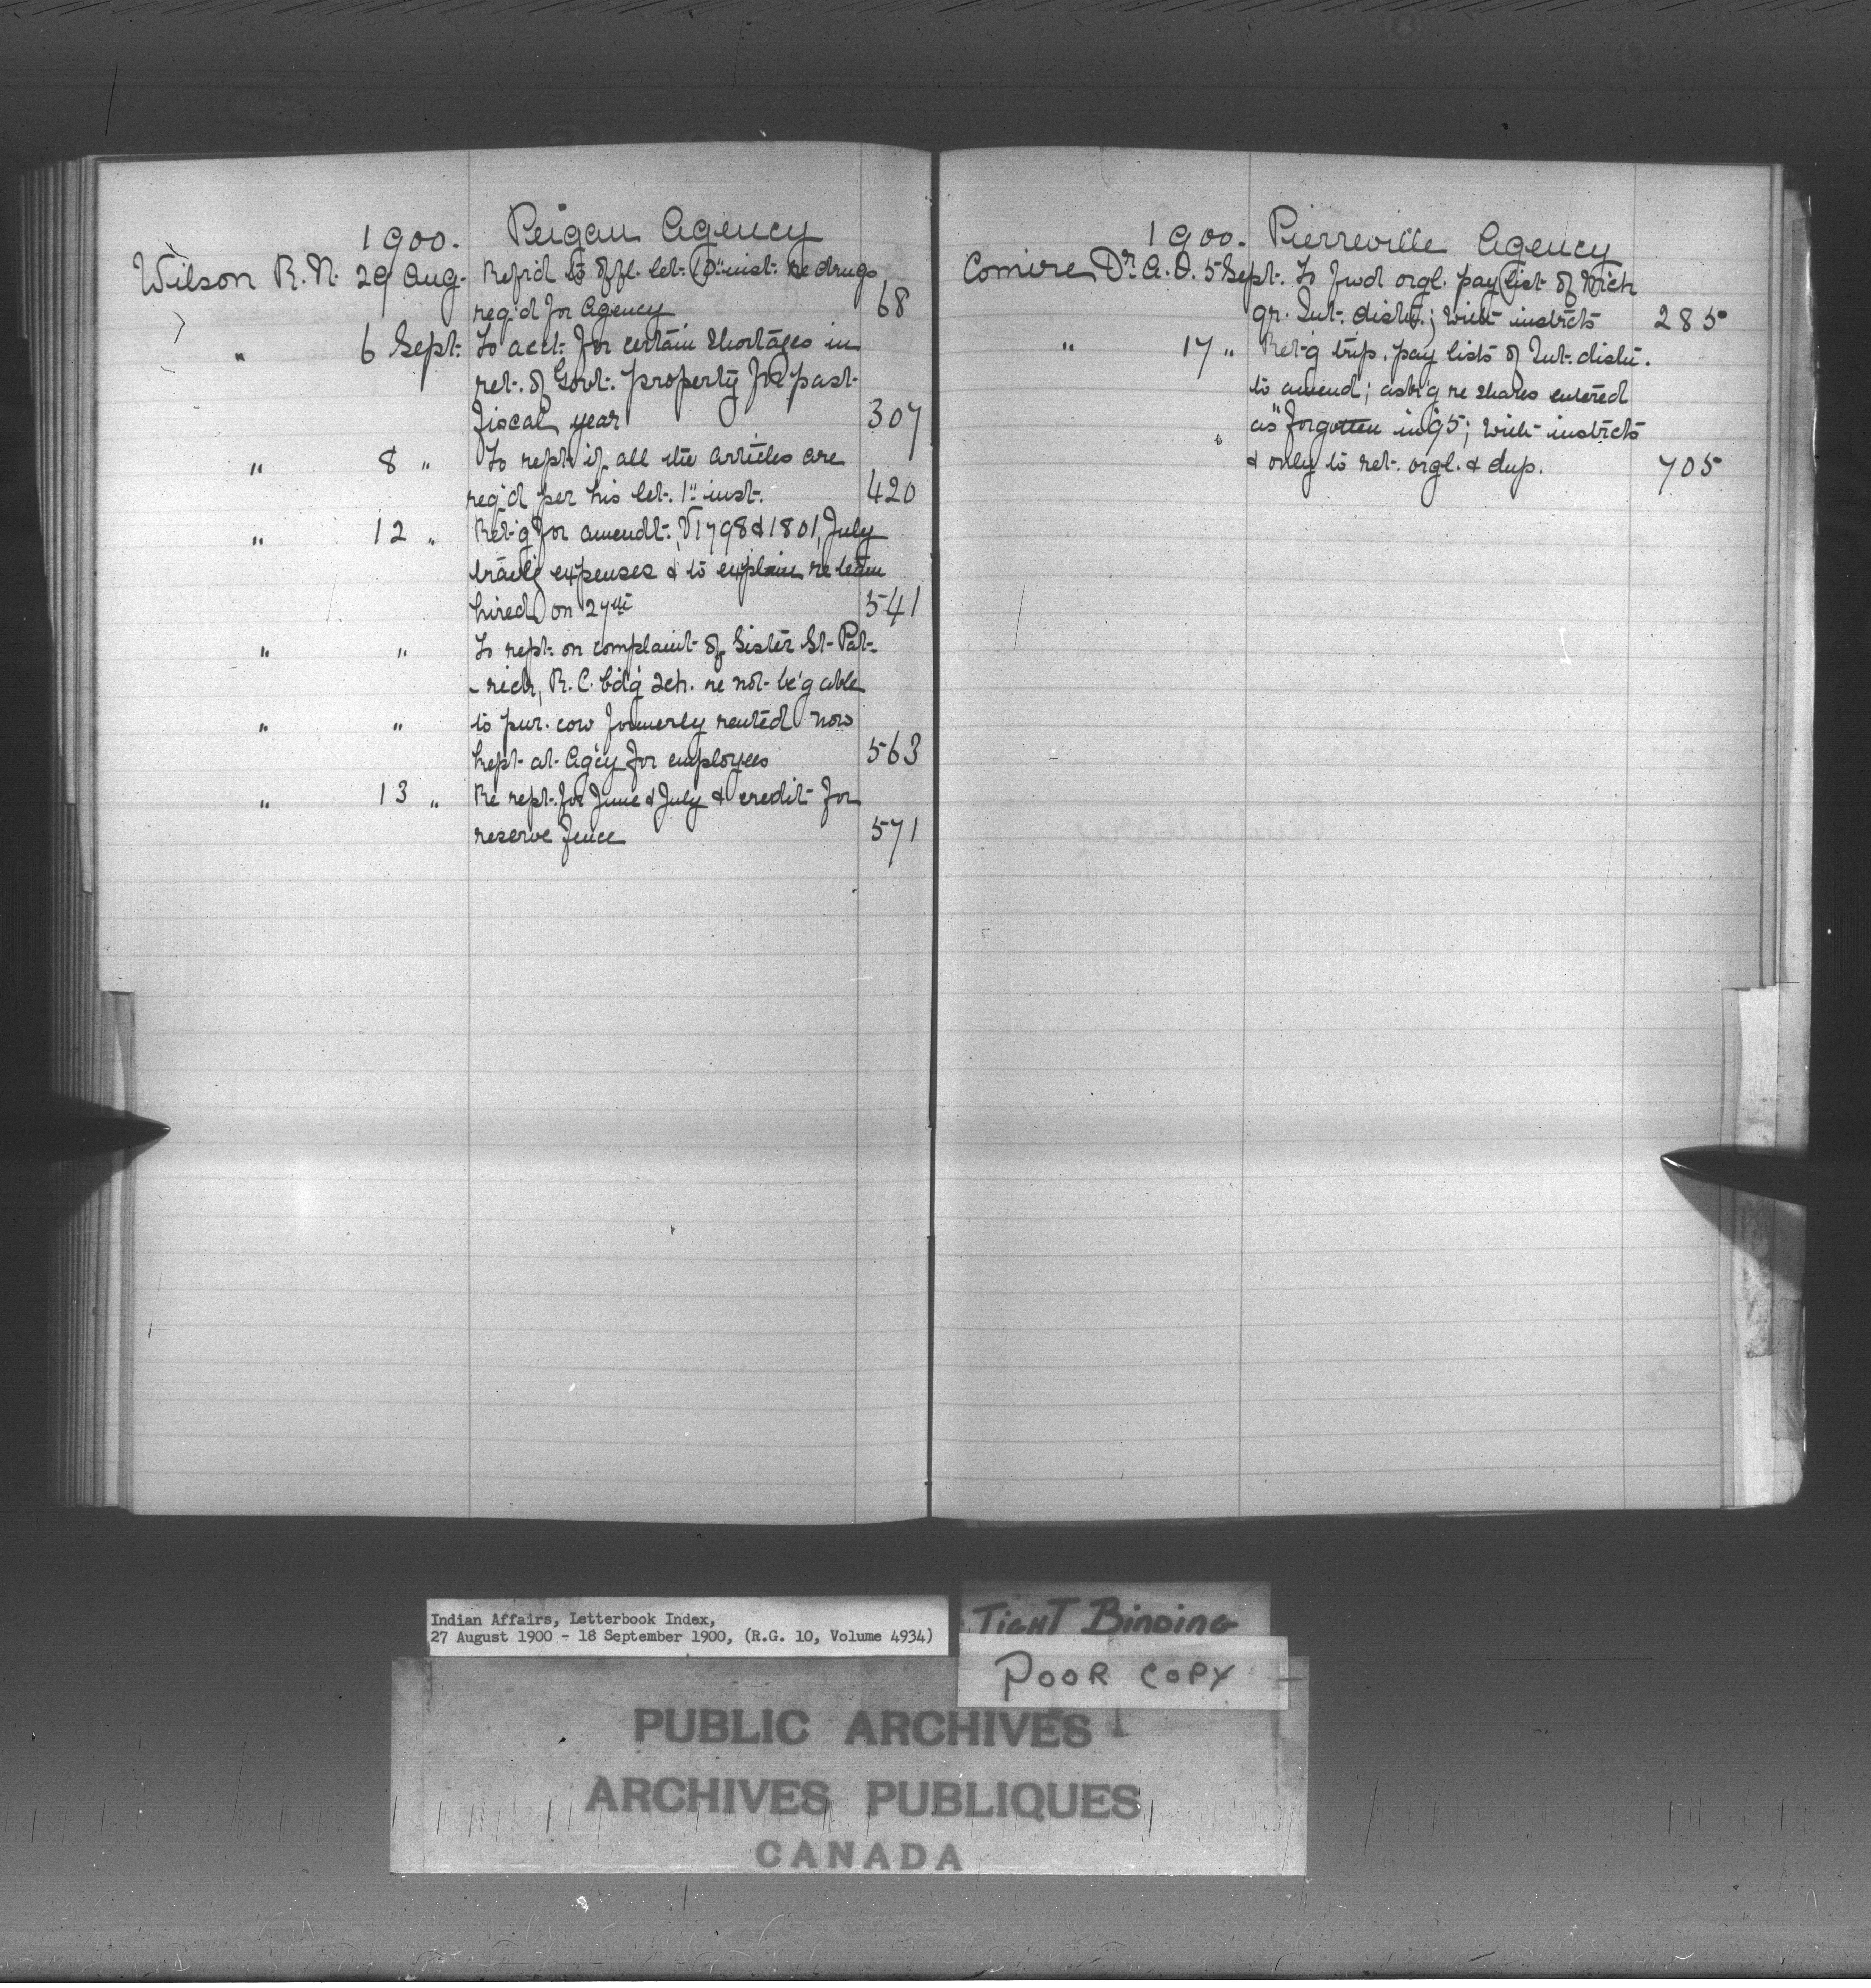 1900. Peigan Agency
Wilson R.N. 29 Aug. Refr'd to offl. let. inst. re drugs
req'd for Agency 68
" 6 Sept. To acct. for certain shortages in
ret. of Govt. property for past
fiscal year 307
" 8 " To rept. if all the articles are
req'd per his let. 1" inst. 420
" 12 " Ret'g for amendt. V1798 & 1801, July
trav'g expenses & to explain re team
hired on 27th 541
" " To rept. on complaint of Sister St. Pat-
-rick, R.C. bd'g sch. re not be'g able
" " to pur. cow formerly rented now
kept at Ag'cy for employees 563
" 13 " Re rept. for June & July & credit for
reserve fence 571
1900. Pierreville Agency
Comire Dr. A.O. 5 Sept. To fwd orgl. pay list of Mich
qr. Int. distn.; with instrcts 285
" 17 " Ret'g trip. pay lists of Int. distn.
to amend; ask'g re shares entered
as "forgotten in 95; with instrcts
& only to ret. orgl. & dup. 705
Indian Affairs, Letterbook Index,
27 August 1900 - 18 September 1900, (R.G. 10, Volume 4934)
TIGHT BINDING
POOR COPY
PUBLIC ARCHIVES
ARCHIVES PUBLIQUES
CANADA